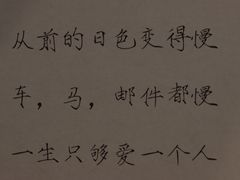 从前的日色变得慢
车，马，邮件都慢
一生只够爱一个人